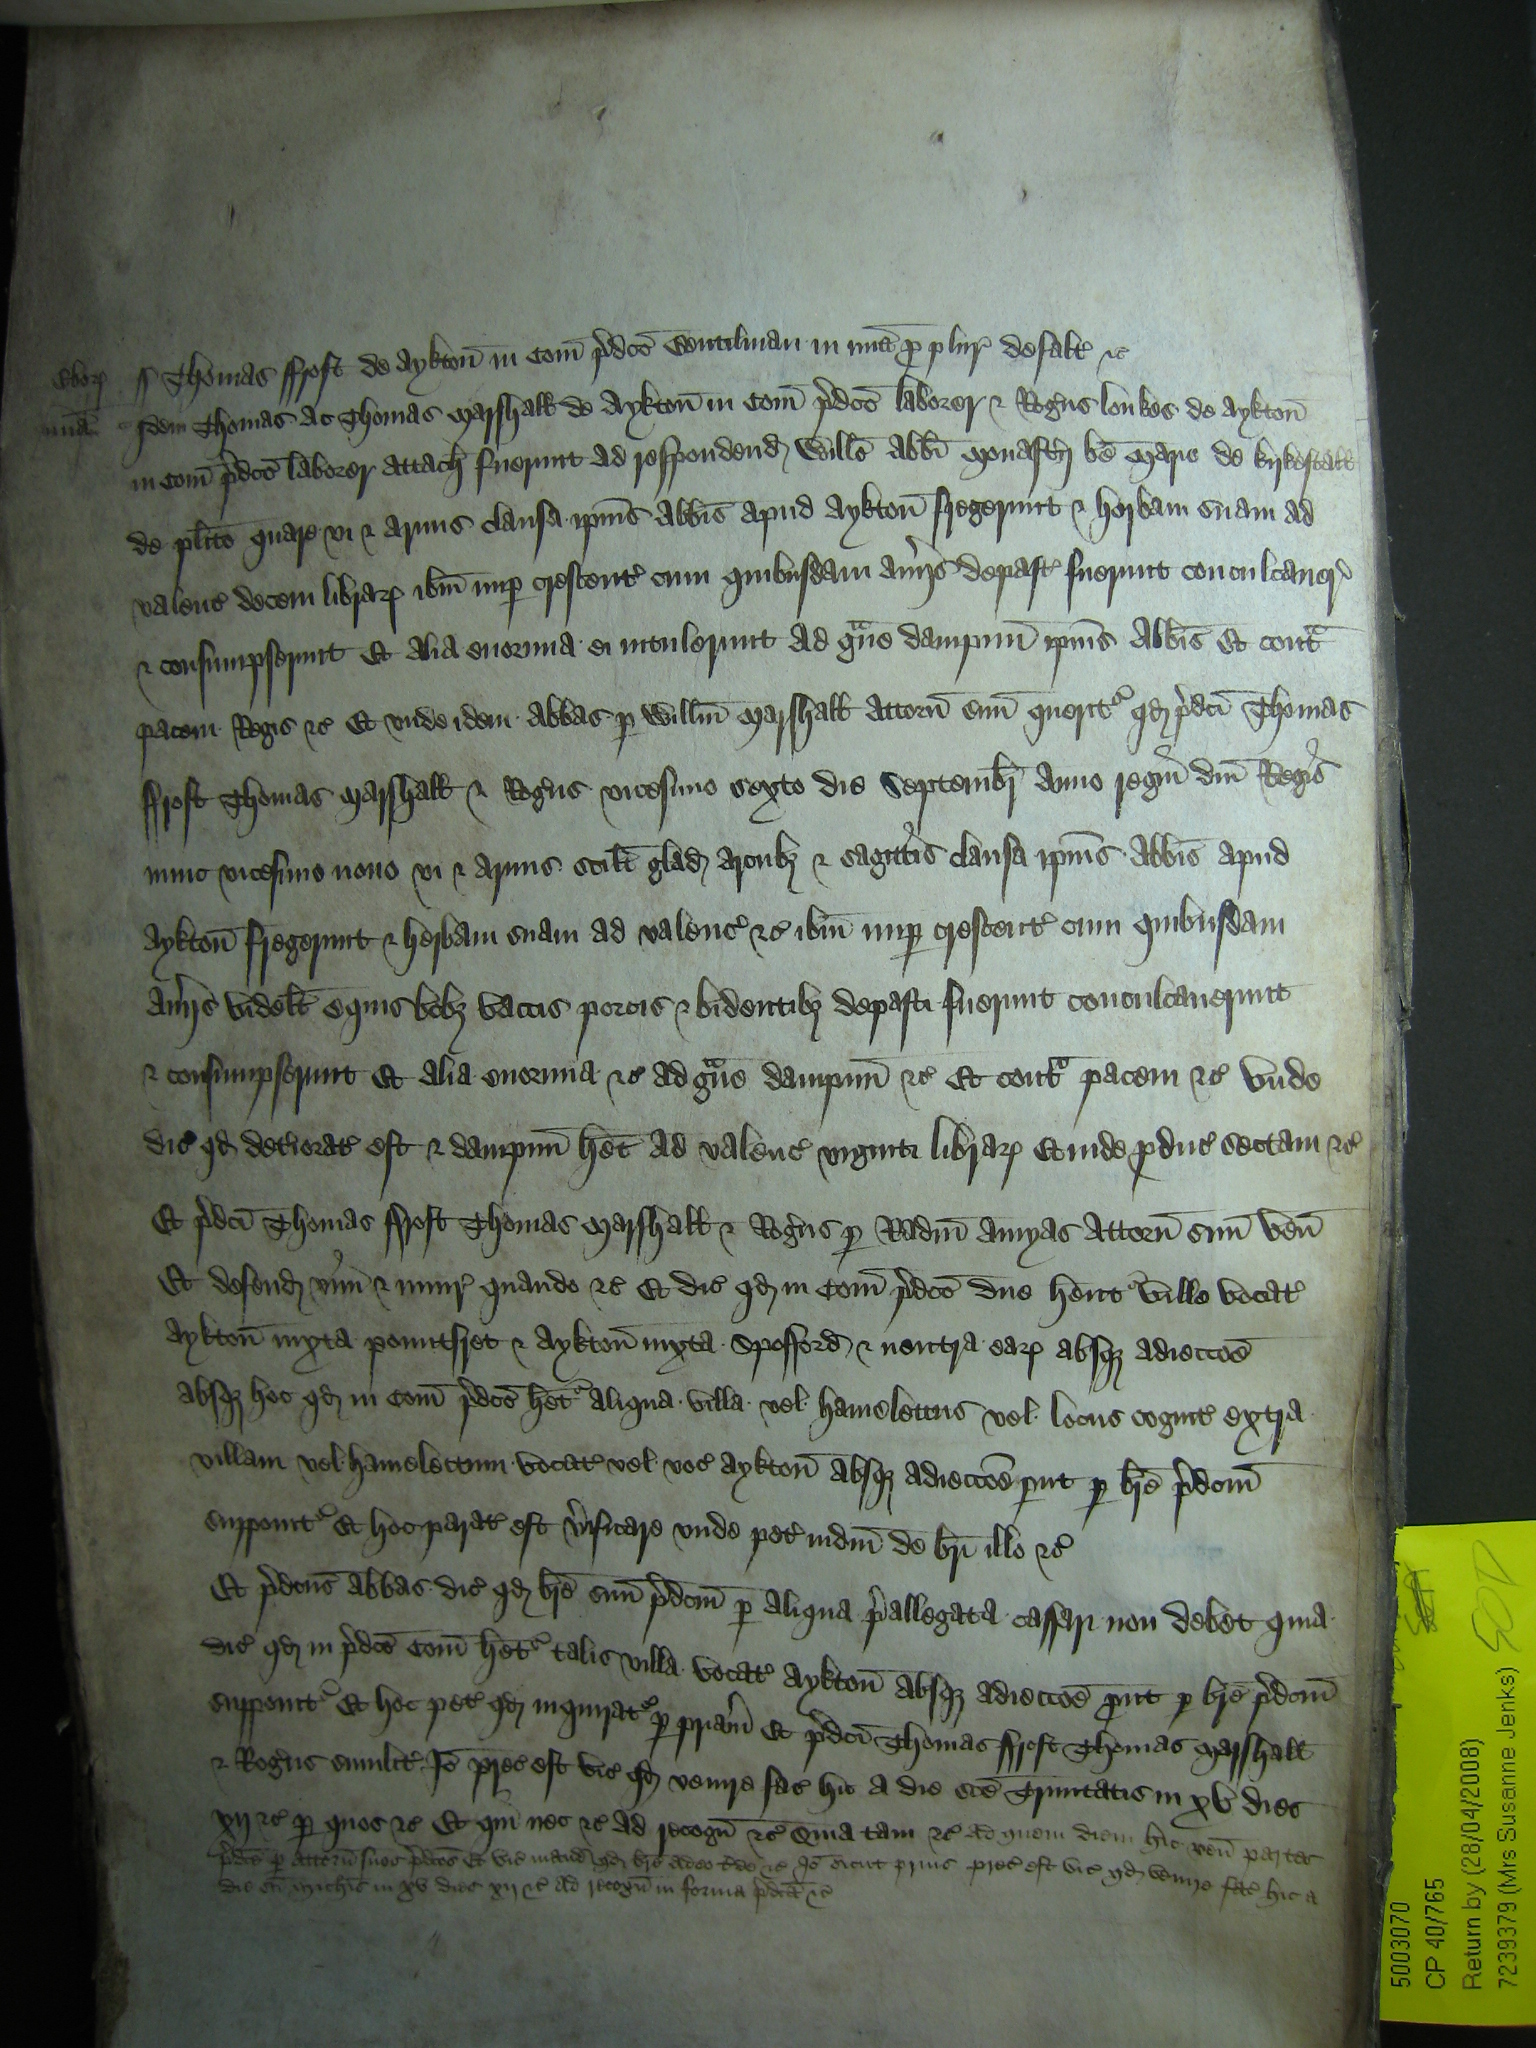 Ebor̄ ss Thomas ffrost de Aykton̄ in Com̄ p̄dc̄o Gentilman in mīa p̱ plur̄ defalt̄ ⁊c̄
mīa Idem Thomas ac Thomas Marshall de Aykton̄ in Com̄ p̄dc̄o laborer ⁊ Roḡus Loukes de Aykton̄
in Com̄ p̄dc̄o laborer attach̄ fuerunt ad respondend̄ Will̄o Abb̄i Monast̄ij b̄e Marie de Kyrkestall
de pl̄ito quare vi ⁊ armis clausa ip̄ius Abb̄is apud Aykton̄ fregerunt ⁊ herbam suam ad
valenc̄ decem librar̄ ib̄m nup̱ crescent̄ cum quibusdam aūijs depast̄ fuerunt conculcaūer̄
⁊ consumpserunt Et alia enormia ei intulerunt ad gūe dampnum ip̄ius Abb̄is Et cont̄
pacem Regis ⁊c̄ Et vnde idem Abbas p̱ Will̄m Marshall attorn̄ suū querit̄ qd̄ p̄dc̄i Thomas
ffrost Thomas Marshall ⁊ Roḡus vicesimo sexto die Septembr̄ anno regni dn̄i Regis
nunc vicesimo nono vi ⁊ armis scil̄t glad̄ arcub̄ʒ ⁊ sagittis clausa ip̄ius Abb̄is apud
Aykton̄ fregerunt ⁊ herbam suam ad valenc̄ ⁊c̄ ib̄m nup̱ crescent̄ cum quibusdam
aūijs videl̄t equis bobʒ vaccis porcis ⁊ bidentibʒ depasti fuerunt conculcauerunt
⁊ consumpserunt Et alia enormia ⁊c̄ ad gūe dampnum ⁊c̄ Et cont̄ pacem ⁊c̄ Vnde
dic̄ qd̄ det̄iorat̄ est ⁊ dampnum h̄et ad valenc̄ viginti librar̄ Et inde p̱duc̄ sectam ⁊c̄
Et p̄dc̄i Thomas ffrost Thomas Marshall ⁊ Roḡus p̱ Rad̄m Amyas attorn̄ suū ven̄
Et defend̄ vim ⁊ iniur̄ quando ⁊c̄ Et dic̄ qd̄ in Com̄ p̄dc̄o due h̄ent̄ ville vocat̄
Aykton̄ iuxta pountfret ⁊ Aykton̄ iuxta Spofford̄ ⁊ neutra ear̄ absqʒ adiecc̄oe
absqʒ hoc qd̄ in Com̄ p̄dc̄o h̄et̄ aliqua villa vel hamelettus vel locus cognit̄ extra
villam vel hamelettum vocat̄ vel voc̄ Aykton̄ absqʒ adiecc̄oe p̱ut p̱ br̄e p̄dc̄m
supponit̄ Et hoc parat̄ est v̄ificare vnde pet̄ iudm̄ de br̄i illo ⁊c̄
Et p̄dc̄us Abbas dic̄ qd̄ br̄e suū p̄dc̄m p̱ aliqua p̄allegata cassari non debet quia
dic̄ qd̄ in p̄dc̄o Com̄ h̄et̄ talis villa vocat̄ Aykton̄ absqʒ adiecc̄oe p̱ut p̱ br̄e p̄dc̄m
supponit̄ Et hoc pet̄ qd̄ inquirat̄ p̱ pr̄iam Et p̄dc̄i Thomas ffrost Thomas Marshall
⁊ Roḡus similit̄ Iō prec̄ est vic̄ qd̄ venire fac̄ hic a die sc̄e Trinitatis in xv dies
xij ⁊c̄ p̱ quos ⁊c̄ Et qui nec ⁊c̄ ad recogn̄ ⁊c̄ Quia tam ⁊c̄ Ad quem diem hic ven̄ partes
p̄dc̄e p̱ attorn̄ suos p̄dc̄os Et vic̄ mand̄ qd̄ br̄e adeo tarde ⁊c̄ Iō sicut prius prec̄ est vic̄ qd̄ venire fac̄ hic a
die sc̄i Mich̄is in xv dies xij ⁊c̄ ad recogn̄ in forma p̄dc̄a ⁊c̄
5003070
CP 40/765
Return by (28/04/2008)
7239379 (Mrs Susanne Jenks)